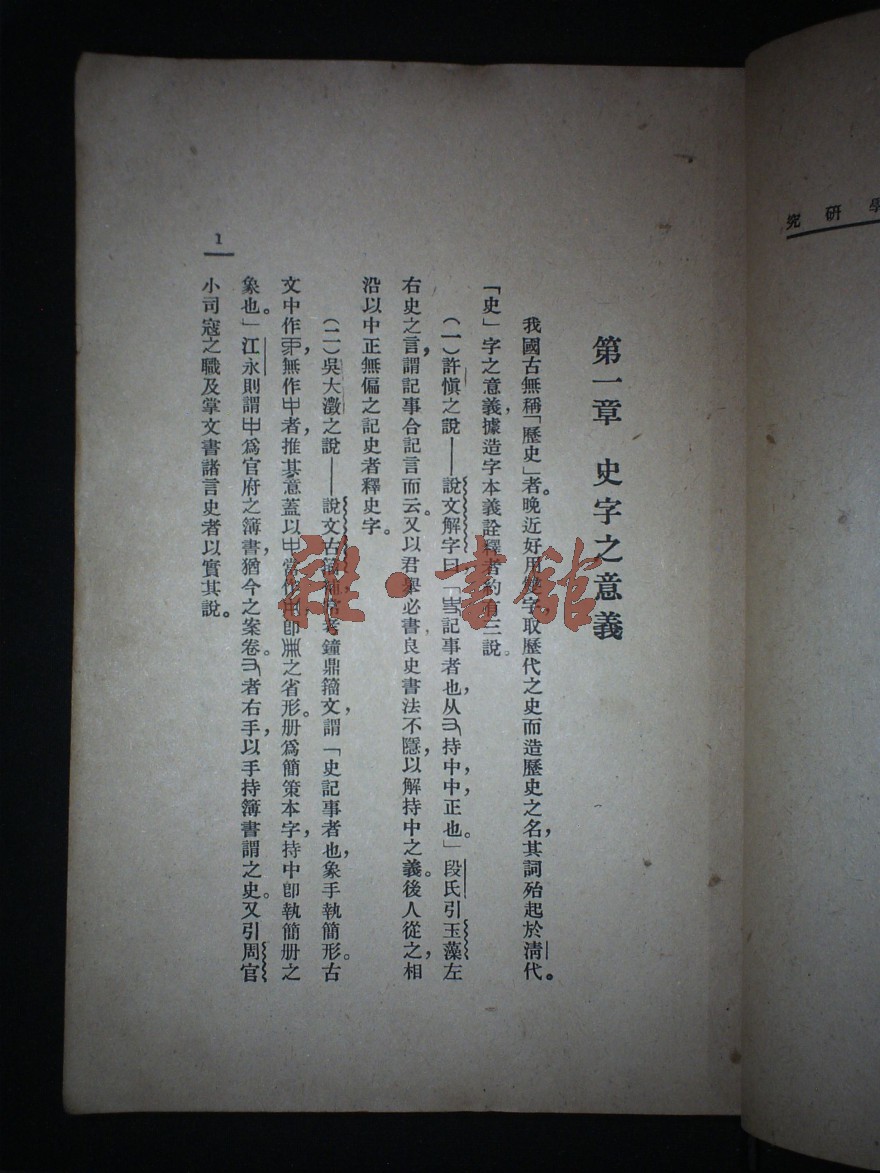 學研究
第一章 史字之意義
我國古無稱「歷史」者。晚近好用雙字取歷代之史而造歷史之名，其詞殆起於清代。
「史」字之意義，據造字本義詮釋者約有三說。
（一）許慎之說——說文解字曰「記事者也，从持中，中，正也。」段氏引玉藻左
右史之言，謂記事合記言而云。又以君舉必書，良史書法不隱，以解持中之義。後人從之，相
沿以中正無偏之記史者釋史字。
（二）吳大澂之說——說文古籀補，嘗考鐘鼎籀文，謂「史記事者也，象手執簡形。古
文中作，無作者，推其意蓋以當作，卽之省形。册爲簡策本字，持中卽執簡册之
象也。」江永則謂爲官府之簿書，猶今之案卷。者右手，以手持簿書謂之史。又引周官
小司寇之職及掌文書諸言史者以實其說。
1
雜·書館